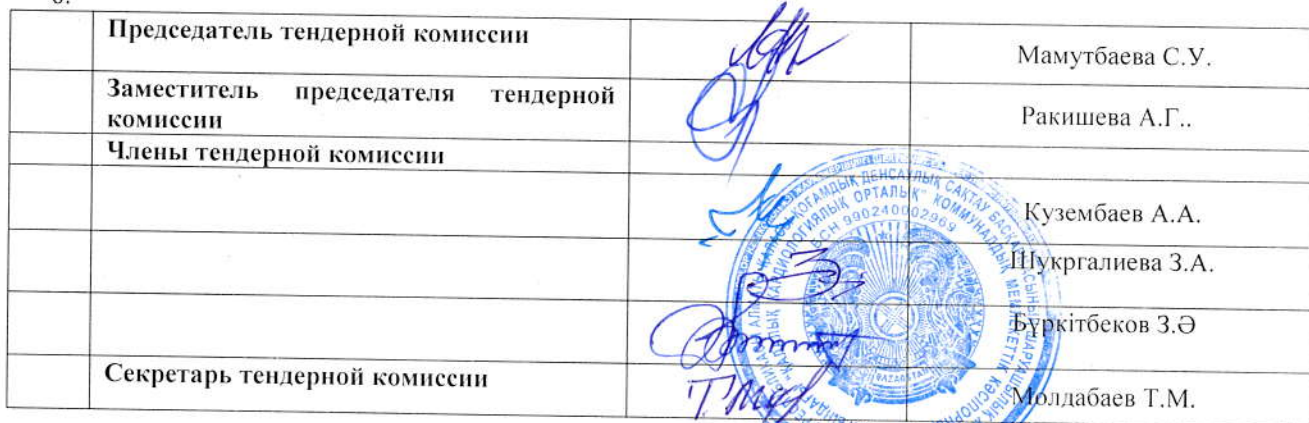 Председатель тендерной комиссии
Мамутбаева С.У.
Заместитель председателя тендерной
комиссии
Ракишева А.Г..
Члены тендерной комиссии
Кузембаев А.А.
Шукргалиева З.А.
Бүркітбеков З.Ә
Секретарь тендерной комиссии
Молдабаев Т.М.
ҚОҒАМДЫҚ ДЕНСАУЛЫҚ САҚТАУ
КАРДИОЛОГИЯЛЫҚ ОРТАЛЫҚ" КОММУНАЛДЫҚ МЕМЛЕКЕТТІК КӘСІПОРНЫ
БСН 990240002969